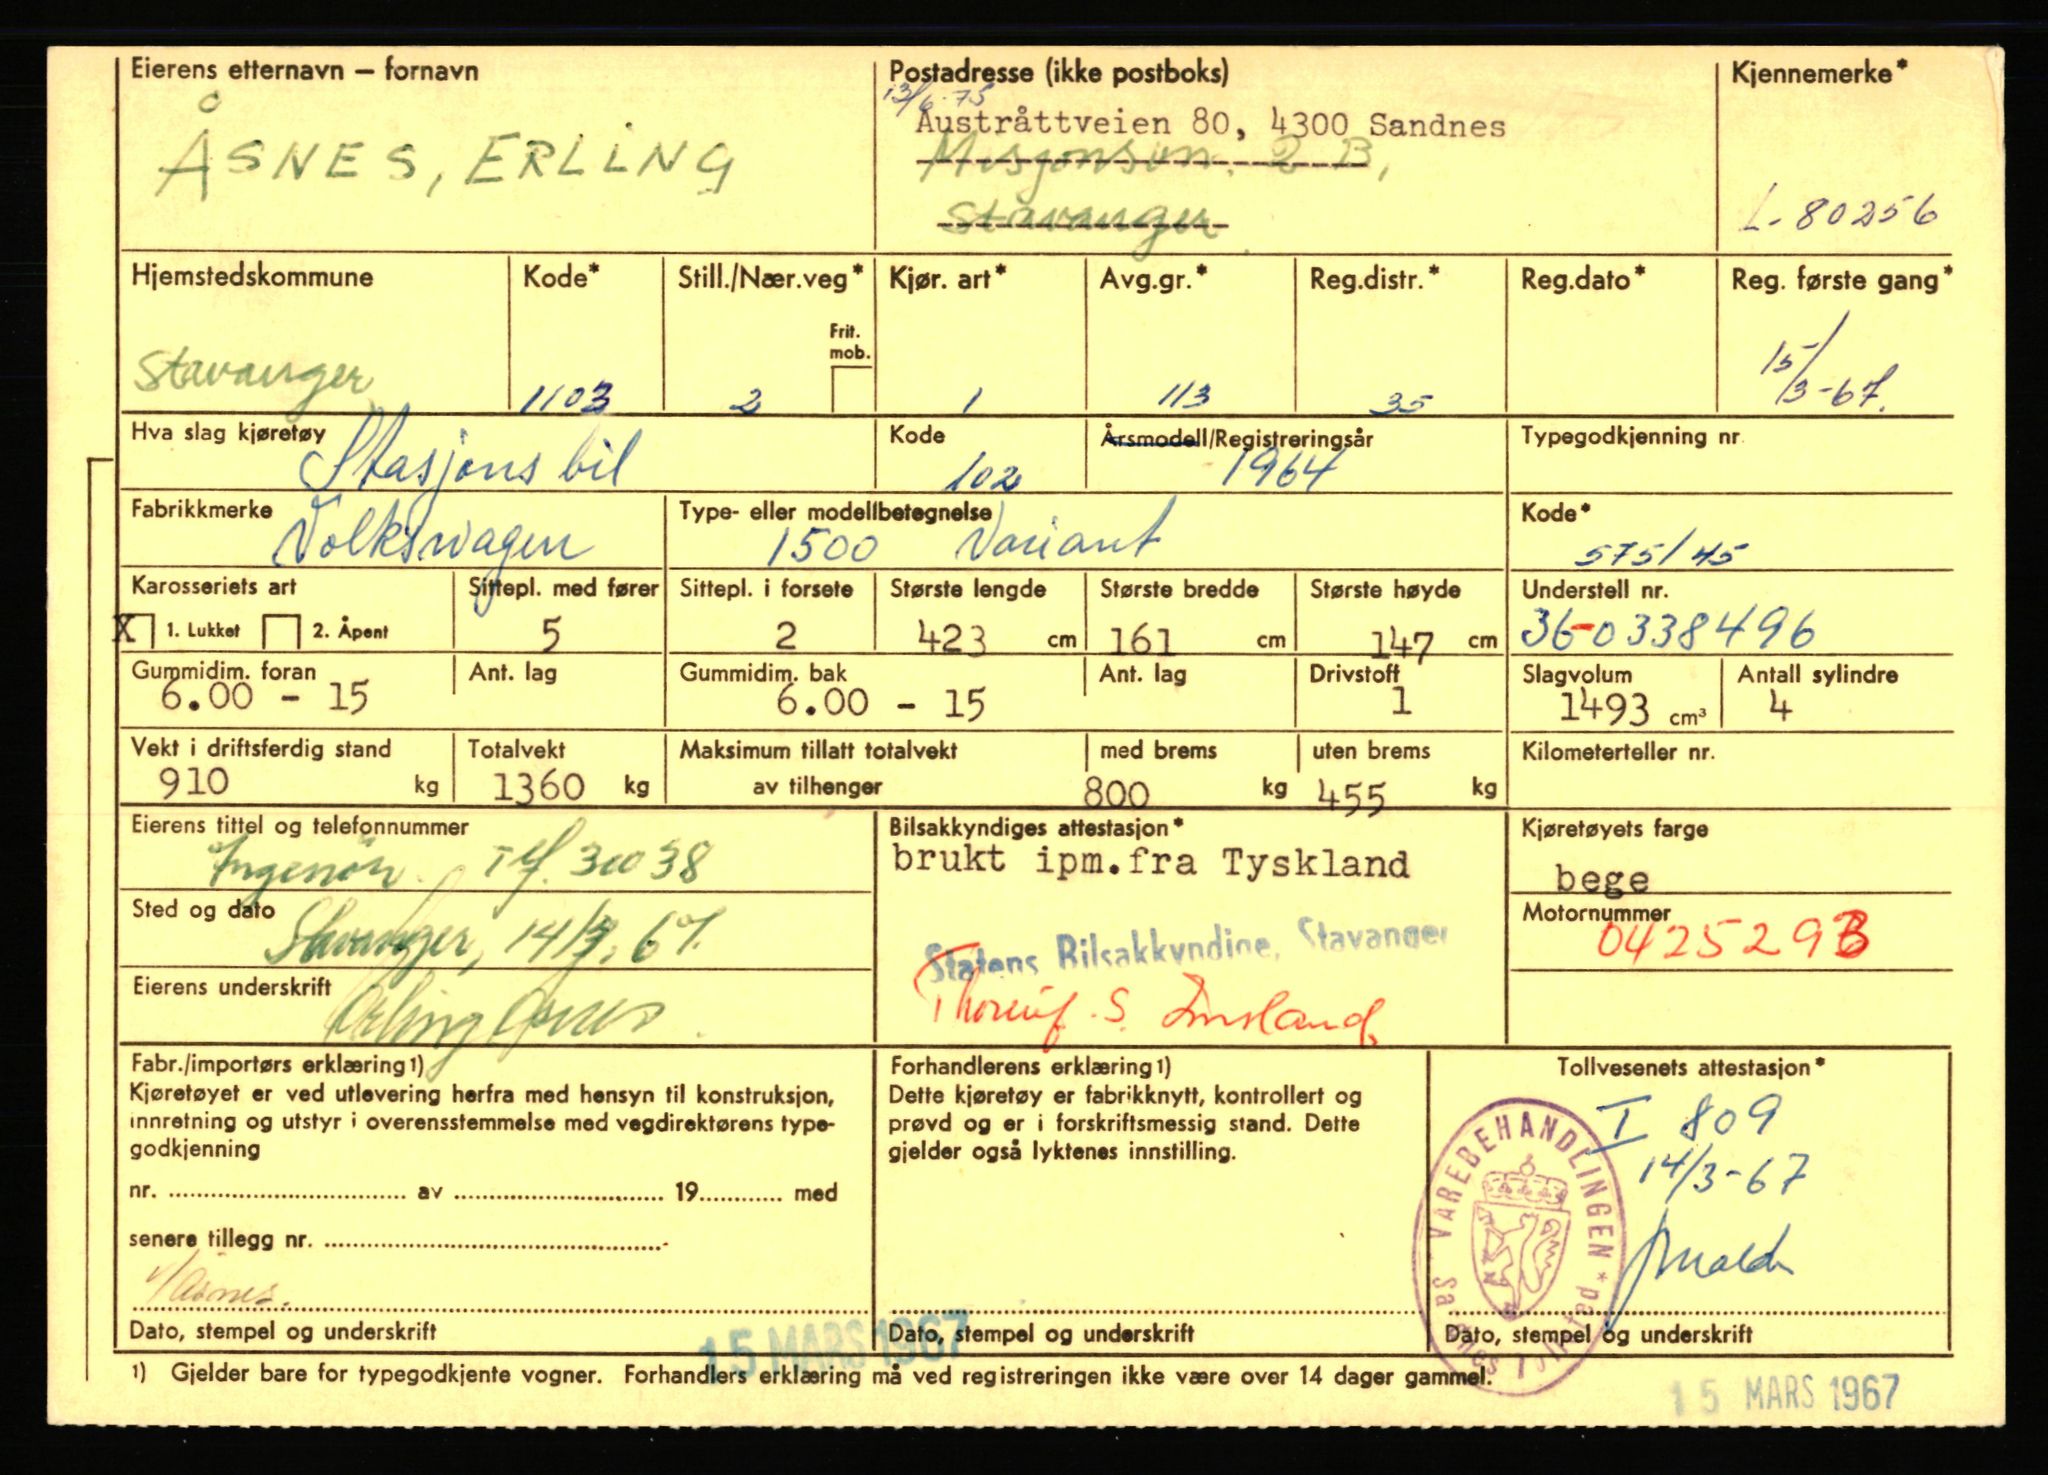 Eierens etternavn – fornavn
ÅSNES, ERLING
Postadresse (ikke postboks)
13/6-75
Austråttveien 80, 4300 Sandnes
2 B,
Stavanger
Kjennemerke*
L-80256
Hjemstedskommune
Stavanger
Kode*
1103
Still./Nær.veg*
Frit.
mob.
2
Kjør. art*
1
Avg.gr.*
113
Reg.distr.*
35
Reg.dato*
Reg. første gang*
15/3-67.
Hva slag kjøretøy
Stasjonsbil
Kode
102
Årsmodell/Registreringsår
1964
Typegodkjenning nr.
Fabrikkmerke
Volkswagen
Type- eller modellbetegnelse
1500 Variant
Kode*
575/45
Karosseriets art
X 1. Lukket 2. Åpent
Sittepl. med fører
5
Sittepl. i forsete
2
Største lengde
423 cm
Største bredde
161 cm
Største høyde
147 cm
Understell nr.
36-0338496
Gummidim. foran
6.00 - 15
Ant. lag
Gummidim. bak
6.00 - 15
Ant. lag
Drivstoff
1
Slagvolum
1493 cm³
Antall sylindre
4
Vekt i driftsferdig stand
910 kg
Totalvekt
1360 kg
Maksimum tillatt totalvekt
av tilhenger
med brems
800 kg
uten brems
455 kg
Kilometerteller nr.
Eierens tittel og telefonnummer
Ingeniør. Tlf. 30038
Bilsakkyndiges attestasjon*
brukt ipm.fra Tyskland
Statens Bilsakkyndige, Stavanger
Kjøretøyets farge
bege
Sted og dato
Stavanger, 14/3. 67.
Motornummer
Eierens underskrift
Erling Åsnes
Fabr./importørs erklæring1)
Kjøretøyet er ved utlevering herfra med hensyn til konstruksjon,
innretning og utstyr i overensstemmelse med vegdirektørens type-
godkjenning
nr. ........ av ........ 19........ med
senere tillegg nr. ........
Åsnes.
Dato, stempel og underskrift
15 MARS 1967
Forhandlerens erklæring1)
Dette kjøretøy er fabrikknytt, kontrollert og
prøvd og er i forskriftsmessig stand. Dette
gjelder også lyktenes innstilling.
Dato, stempel og underskrift
Tollvesenets attestasjon*
I 809
14/3-67
VAREBEHANDLINGEN *
Dato, stempel og underskrift
1) Gjelder bare for typegodkjente vogner. Forhandlers erklæring må ved registreringen ikke være over 14 dager gammel.
15 MARS 1967